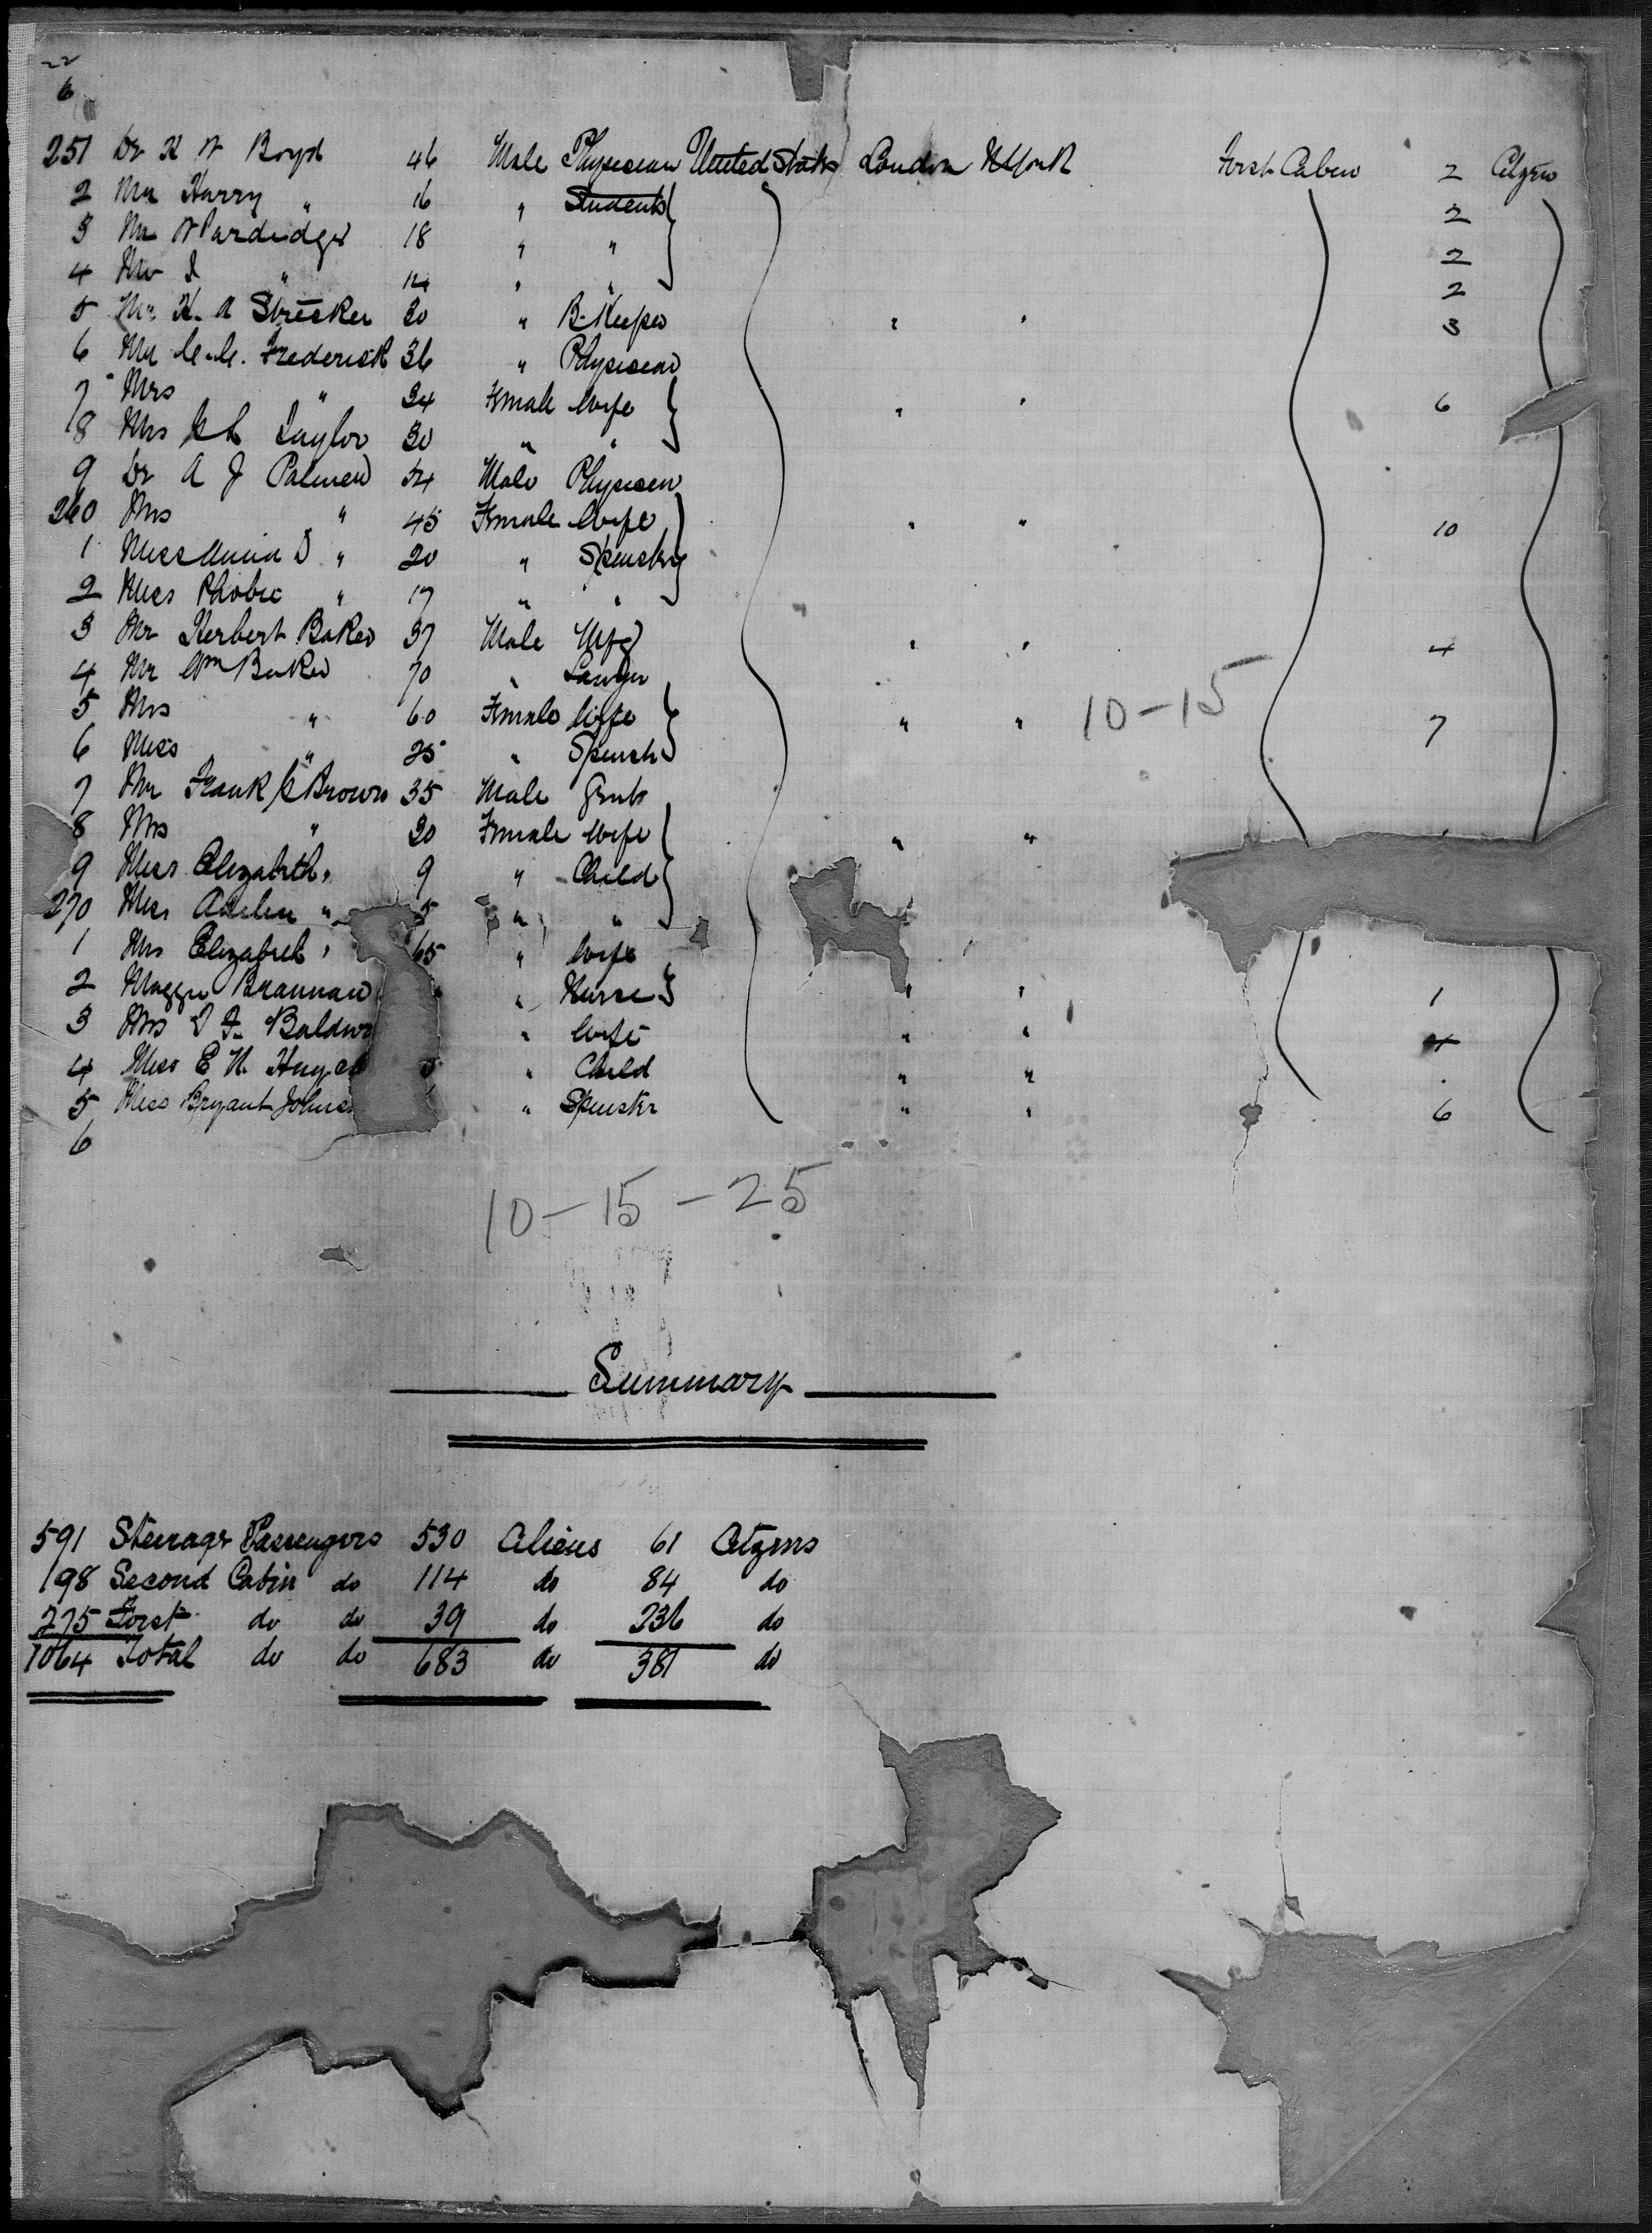 22
6
251 Dr H W Boyd 46 Male Physician United States London N York First Cabin 2 Citzen
2 Mr Harry " 16 " Students 2
3 Mr W Pardridge 18 " " 2
4 Mr I " 14 " " 2
5 Mr H. A Strecker 20 " B. Keeper " " 3
6 Mr C. C. Frederick 36 " Physician
7 Mrs " 34 Female Wife " " 6
8 Mrs Taylor 30 " "
9 Dr A J Palmer 54 Male Physicen
260 Mrs " 45 Female Wife " " 10
1 Miss Anna D " 20 " Spenster
2 Miss Phobie " 17 " "
3 Mr Herbert Baker 37 Male Mfg " " 4
4 Mr Wm Baker 70 " Lawyer
5 Mrs " 60 Female Wife " " 10-15 7
6 Miss " 25 " Spenster
7 Mr Frank C Brown 35 Male Gent
8 Mrs " 30 Female Wife " "
9 Miss Elizabeth " 9 " Child
270 Miss " 5 " "
1 Mrs Elizabeth " 65 " Wife
2 Maggie Brannan " Nurse " " 1
3 Mrs Baldw " Wife " " 4
4 Miss E H. " Child " "
5 Miss Bryant Johns " Spenster " " 6
6
10-15-25
Summary
591 Steerage Passengers 530 Aliens 61 Citzens
198 Second Cabin do 114 do 84 do
275 First do do 39 do 236 do
1064 Total do do 683 do 381 do